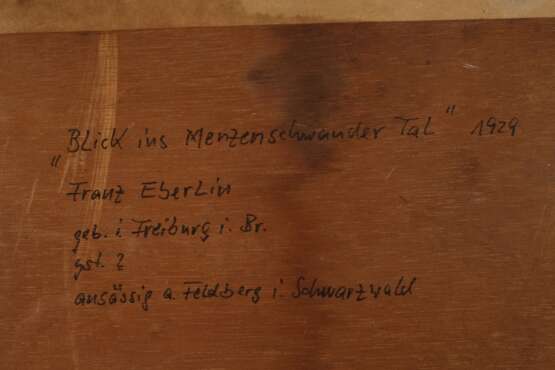 „Blick ins Menzenschwander Tal" 1929
Franz Eberlin
geb. i. Freiburg i. Br.
gst. ?
ansässig a. Feldberg i. Schwarzwald